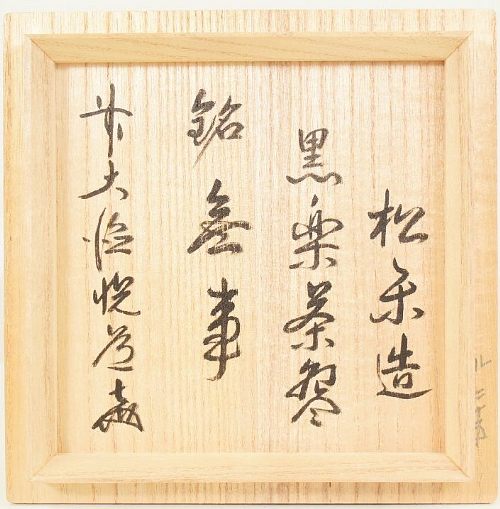 松楽造
黒楽茶盌
銘 無事
前大徳悦道